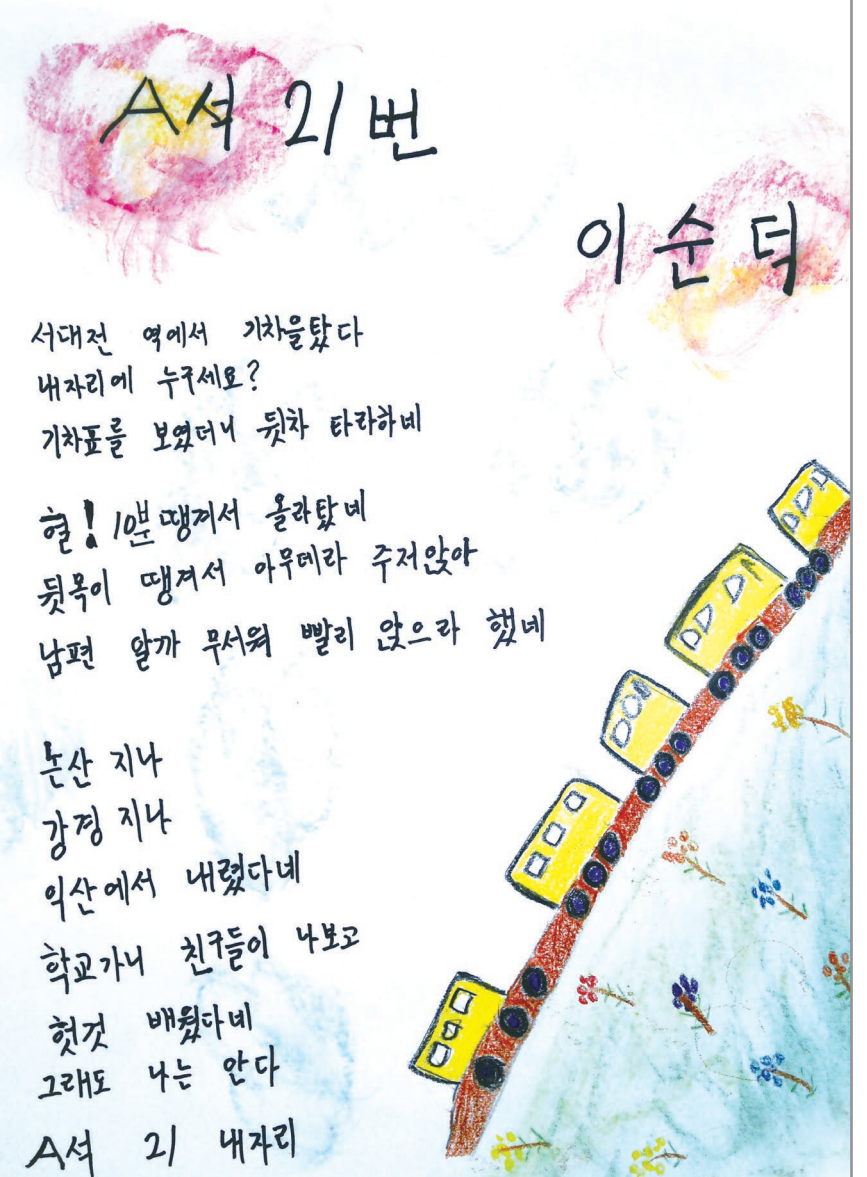 A석 21번
이순덕
서대전 역에서 기차을탔다
내자리에 누구세요?
기차표를 보였더니 뒷차 타라하네
헐! 10분땡겨서 올라탔네
뒷목이 땡겨서 아무데라 주저앉아
남편 알까 무서워 빨리 앉으라 했네
논산 지나
강경 지나
익산에서 내렸다네
학교가니 친구들이 나보고
헛것 배웠다네
그래도 나는 안다
A석 21 내자리